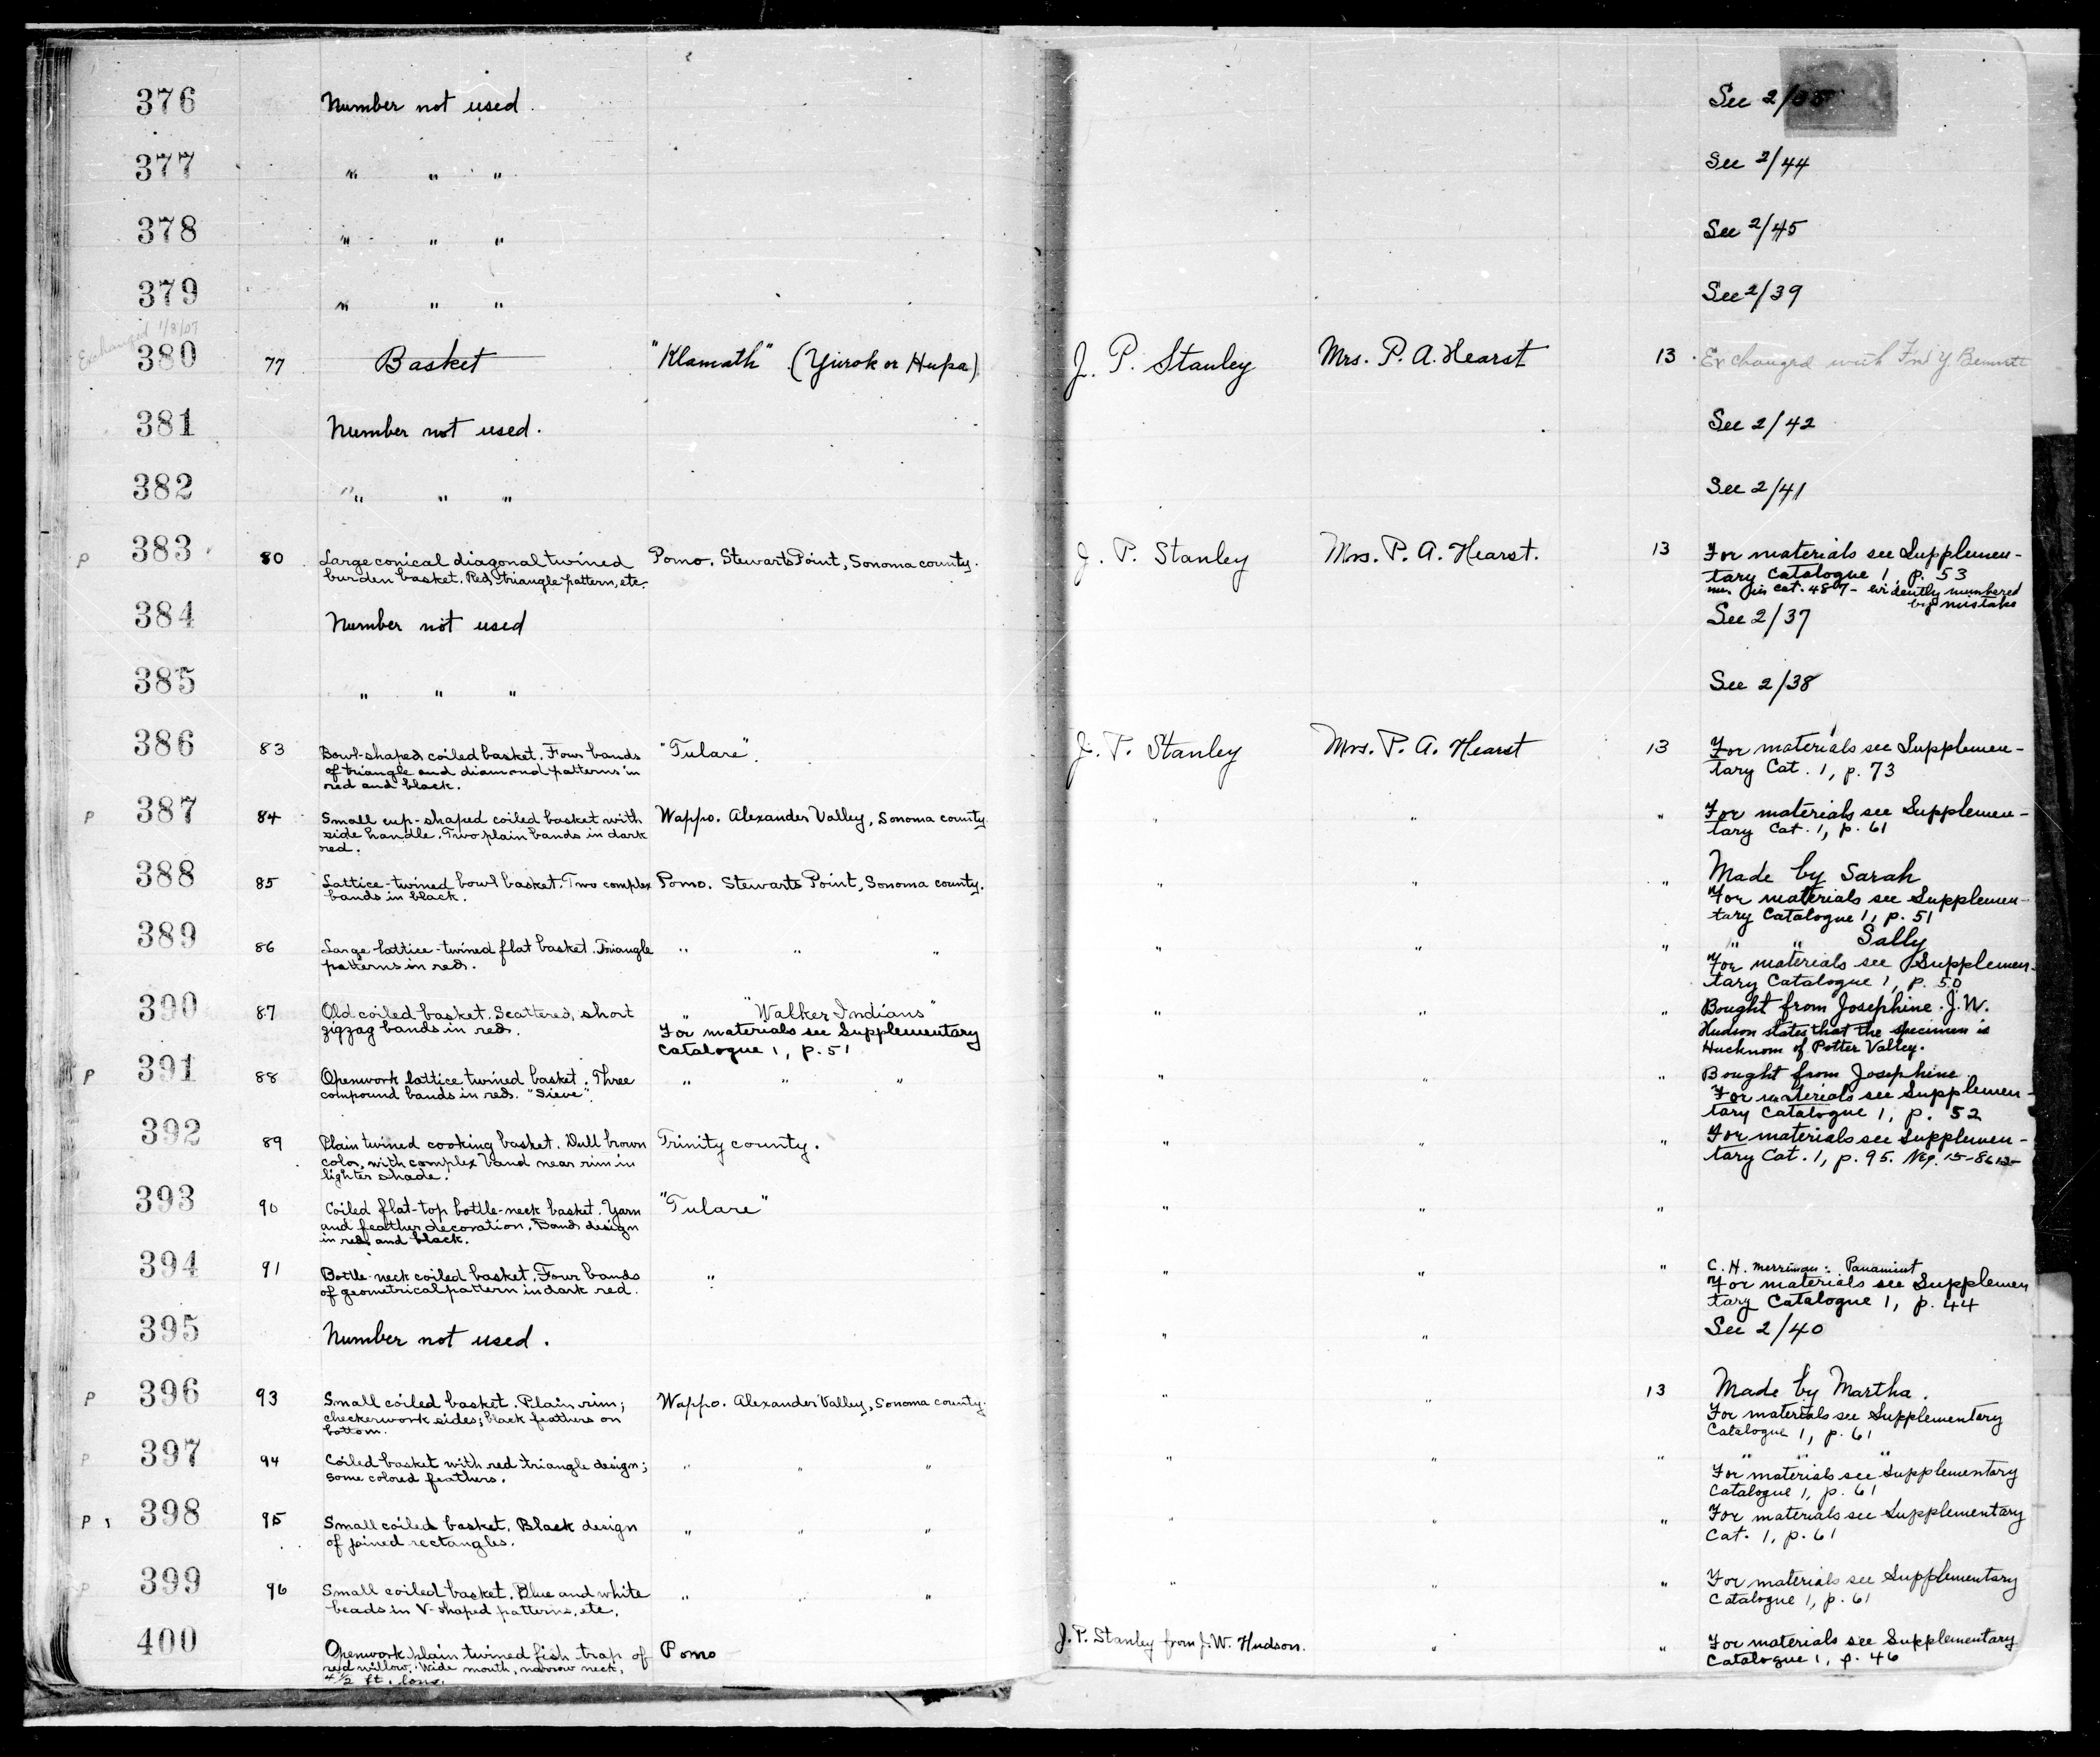 376 Number not used. See 2/
377 " " " See 2/44
378 " " " See 2/45
379 " " " See 2/39
Exchanged 1/8/07
380 77 Basket "Klamath" (Yurok or Hupa) J. P. Stanley Mrs. P. A. Hearst 13 Exchanged with Bennett
381 Number not used. See 2/42
382 " " " See 2/41
P 383 80 Large conical diagonal twined Pomo. Stewarts Point, Sonoma county. J. P. Stanley Mrs. P. A. Hearst. 13 For materials see Supplemen-
burden basket. Red, triangle pattern, etc. tary Catalogue 1, p. 53
cat. 4867 - evidently numbered
by mistake
384 Number not used See 2/37
385 " " " See 2/38
386 83 Bowl-shaped coiled basket. Four bands "Tulare". J. P. Stanley Mrs. P. A. Hearst 13 For materials see Supplemen-
of triangle and diamond patterns in tary Cat. 1, p. 73
red and black.
P 387 84 Small cup-shaped coiled basket with Wappo. Alexander Valley, Sonoma county " " " For materials see Supplemen-
side handle. Two plain bands in dark tary Cat. 1, p. 61
red.
388 85 Lattice-twined bowl basket. Two complex Pomo. Stewarts Point, Sonoma county. " " " Made by Sarah
bands in black. For materials see Supplemen-
tary Catalogue 1, p. 51
389 86 Large lattice-twined flat basket. Triangle " " " " " " " " Sally
patterns in red. For materials see Supplemen-
tary Catalogue 1, p. 50
390 87 Old coiled basket. Scattered, short " "Walker Indians" " " " Bought from Josephine. J. W.
zigzag bands in red. For materials see Supplementary Hudson states that the specimen is
Catalogue 1, p. 51 Hucknom of Potter Valley.
P 391 88 Openwork lattice twined basket. Three " " " " " " Bought from Josephine.
compound bands in red. "Sieve". For materials see Supplemen-
tary Catalogue 1, p. 52
392 89 Plain twined cooking basket. Dull brown Trinity county. " " " For materials see Supplemen-
color, with complex band near rim in tary Cat. 1, p. 95. Neg. 15-8612
lighter shade.
393 90 Coiled flat-top bottle-neck basket. Yarn "Tulare" " " "
and feather decoration. Band design
in red and black.
394 91 Bottle-neck coiled basket. Four bands " " " " C. H. Merriman: Panamint
of geometrical pattern in dark red. For materials see Supplemen
tary Catalogue 1, p. 44
395 Number not used. " " See 2/40
P 396 93 Small coiled basket. Plain rim; Wappo. Alexander Valley, Sonoma county. " " 13 Made by Martha.
checkerwork sides; black feathers on For materials see Supplementary
bottom. Catalogue 1, p. 61
P 397 94 Coiled basket with red triangle design; " " " " " " " " "
some colored feathers. For materials see Supplementary
Catalogue 1, p. 61
P 398 95 Small coiled basket. Black design " " " " " " For materials see Supplementary
of joined rectangles. Cat. 1, p. 61
P 399 96 Small coiled basket. Blue and white " " " " " " For materials see Supplementary
beads in V-shaped patterns, etc. Catalogue 1, p. 61
400 Openwork plain twined fish trap of Pomo J. P. Stanley from J. W. Hudson. " " For materials see Supplementary
red willow. Wide mouth, narrow neck, Catalogue 1, p. 46
4 1/2 ft. long.